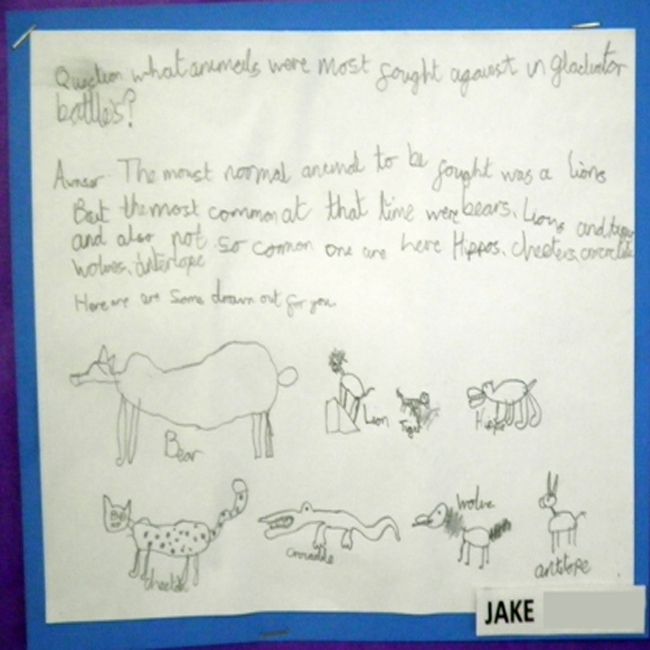 Question what animels were most fought against in gladiator
battles?
Awnser. The moust normal animal to be fought was a lions
But the most common at that time were bears, Lions and tiger
and also not so common one are here Hippos, cheeters, crocodile
wolves, anterlope
Here are are some drawn out for you.
Bear
Lion
Tiger
Hippo
cheetah
crocodile
wolve
antilope
JAKE